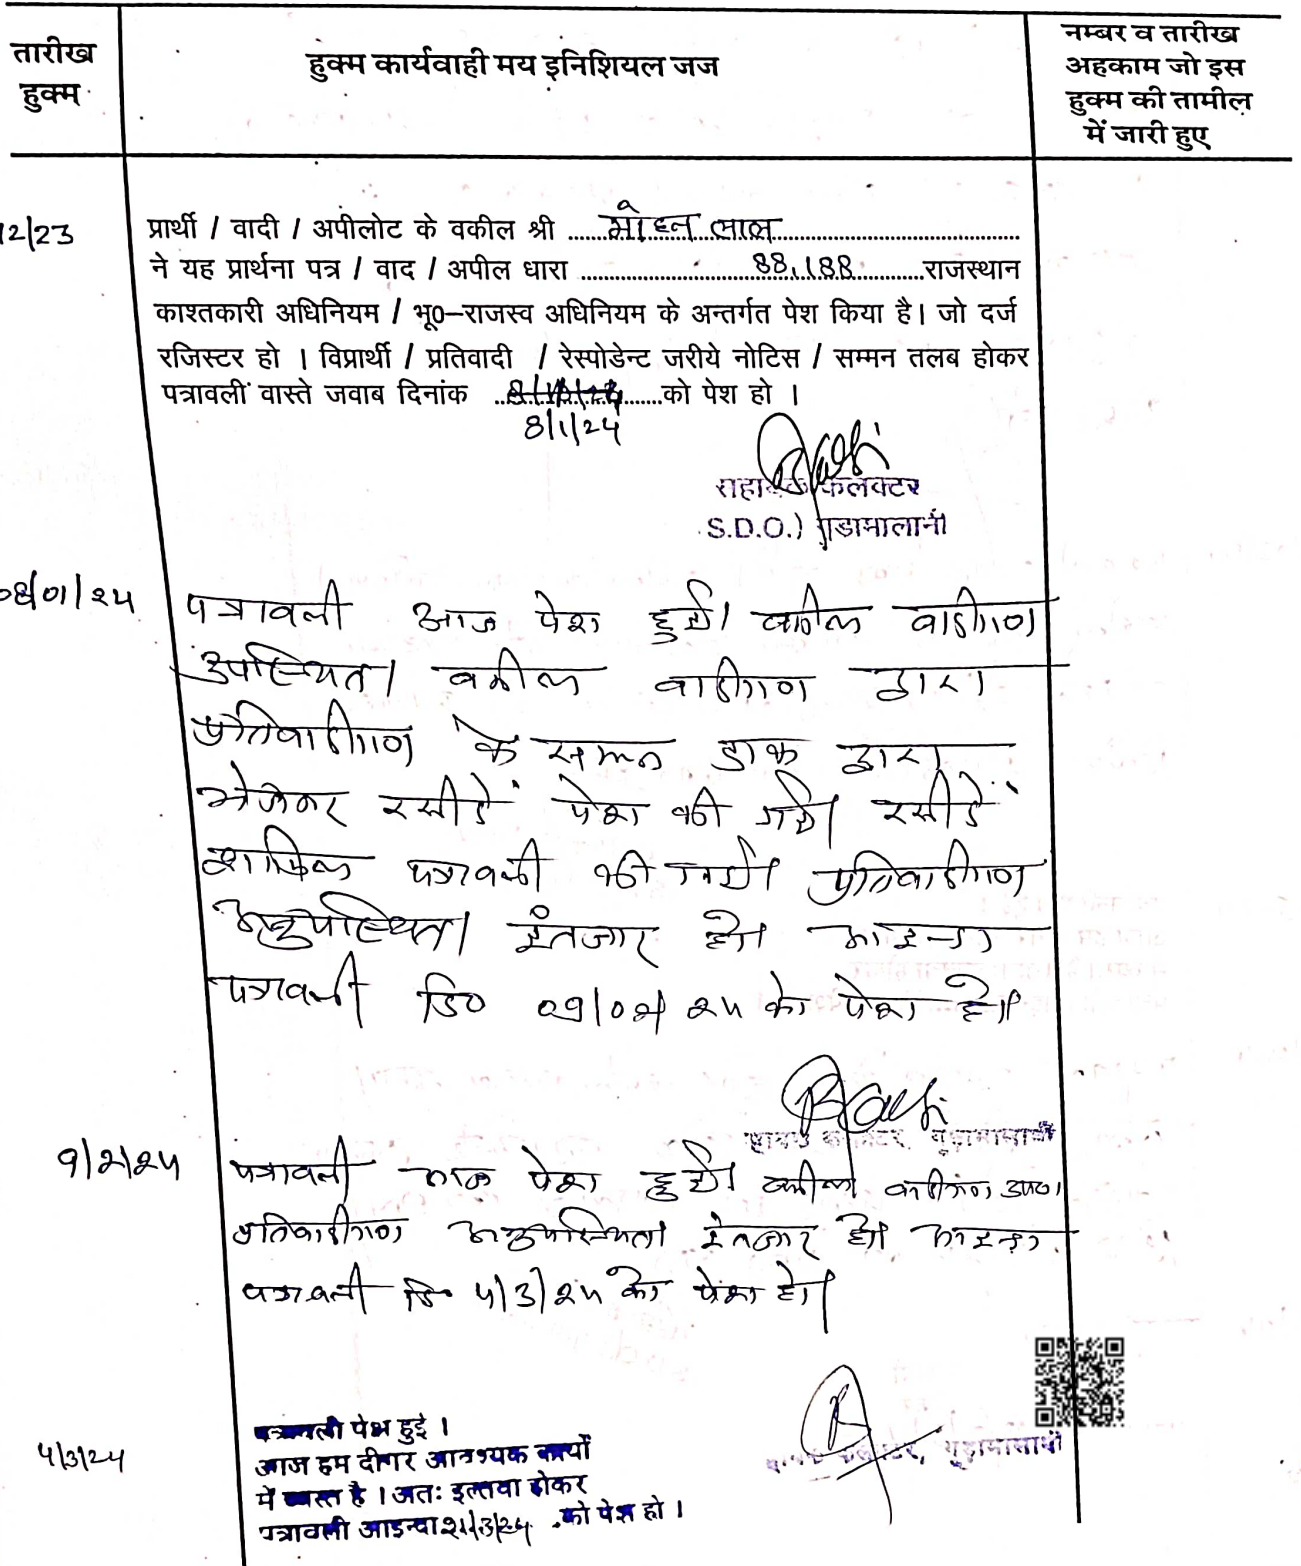 तारीख
हुक्म
हुक्म कार्यवाही मय इनिशियल जज
नम्बर व तारीख
अहकाम जो इस
हुक्म की तामील
में जारी हुए
12/23
प्रार्थी / वादी / अपीलोट के वकील श्री ......मोहन लाल......
ने यह प्रार्थना पत्र / वाद / अपील धारा ......88,188......राजस्थान
काश्तकारी अधिनियम / भू0–राजस्व अधिनियम के अन्तर्गत पेश किया है। जो दर्ज
रजिस्टर हो । विप्रार्थी / प्रतिवादी / रेस्पोडेन्ट जरीये नोटिस / सम्मन तलब होकर
पत्रावली वास्ते जवाब दिनांक ............को पेश हो ।
8/1/24
सहायक कलक्टर
S.D.O.) गुडामालानी
08/01/24
पत्रावली आज पेश हुई। वकील वादीगण
उपस्थित। वकील वादीगण द्वारा
प्रतिवादीगण के सम्मन डाक द्वारा
भेजकर रसीदें पेश की गई। रसीदें
शामिल पत्रावली की गई। प्रतिवादीगण
अनुपस्थित। इंतजार हो। आइन्दा
पत्रावली दि0 09/02/24 को पेश हो।
कलक्टर, गुडामालानी
9/2/24
पत्रावली आज पेश हुई। वकील वादीगण उप0।
प्रतिवादीगण अनुपस्थित। इंतजार हो। आइन्दा
पत्रावली दि0 4/3/24 को पेश हो।
कलक्टर, गुडामालानी
4/3/24
पत्रावली पेश हुई ।
आज हम दीगर आवश्यक कार्यों
में व्यस्त है । अतः इल्तवा होकर
पत्रावली आइन्दा 21/3/24 को पेश हो ।